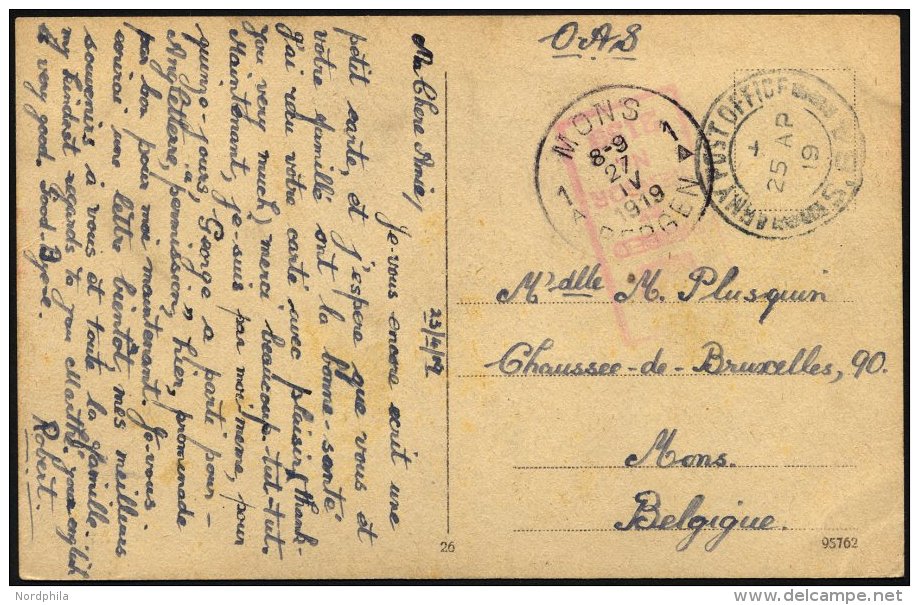 Ma Chere Amie,
23/4/19
Je-vous encore ecrit une
petit carte, et j'espere que vous et
votre famille sont la bonne-sante
J'ai reçu votre carte avec plaisir (thank-
you very much) merci beaucoup-tut-tut.
Maintenant, je-suis par moi meme, pour
quinze-jours, George a parti pour-
Angleterre, "permission," hier, promenade
pas bon pour moi maintenant. Je-vous
ecrirai une lettre bientot, mes meilleurs
souvenirs à vous et toute la famille
my kindest regards to you Marthe, your english
is very good. Good Bye.
Robert.
OAS
MONS
1 1
8-9
27
IV
1919
A A
BERGEN
ARMY POST OFFICE
+
25 AP
19
S.
Mr dlle M. Plusquin
Chaussee-de-Bruxelles, 90.
Mons.
Belgique.
26
95762
Nordphila
delcampe.net